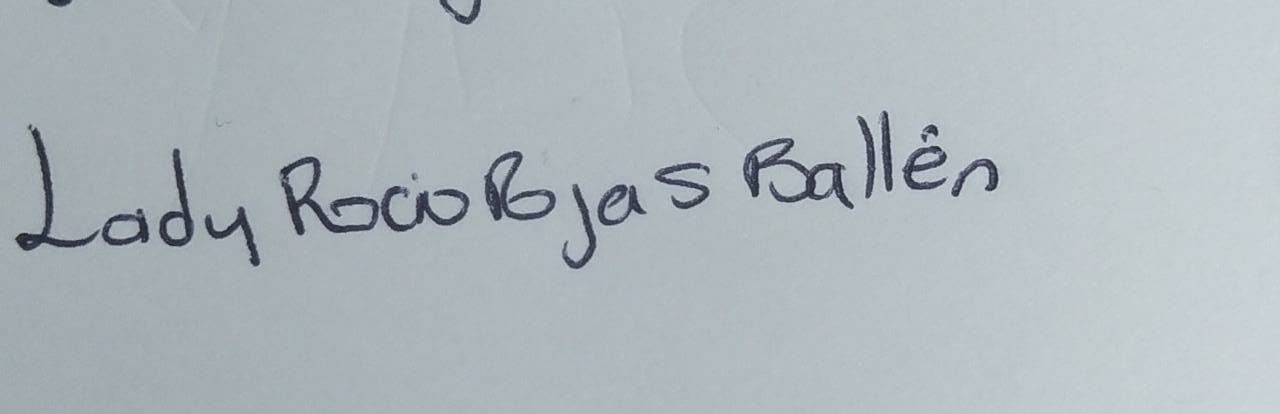 Lady Rocio Rojas Ballén